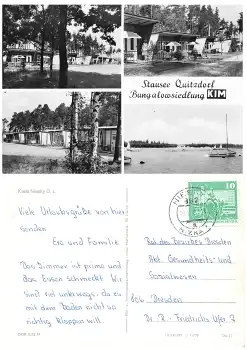 Stausee Quitzdorf
Bungalowsiedlung KIM
Kreis Niesky O. L.
10
Viele Urlaubsgrüße von hier
senden
und Familie
Das Zimmer ist prima und
das Essen schmeckt. Wir
sind viel unterwegs, da es
mit dem Baden nicht so
richtig klappen will.
Rat des Bezirkes Dresden
Abt. Gesundheits- und
Sozialwesen
806 Dresden